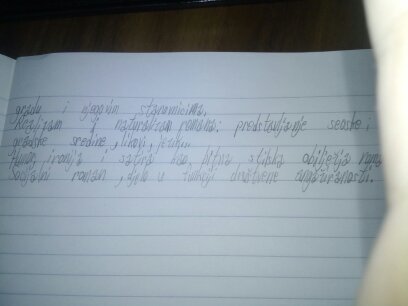 gradu i njegovim stanovnicima.
Realizam i naturalizam romana: predstavljanje seoske i
gradske sredine, likovi, jezik...
Humor, ironija i satira kao bitna stilska obilježja
Socijalni roman, djelo u funkciji društvene angažiranosti.